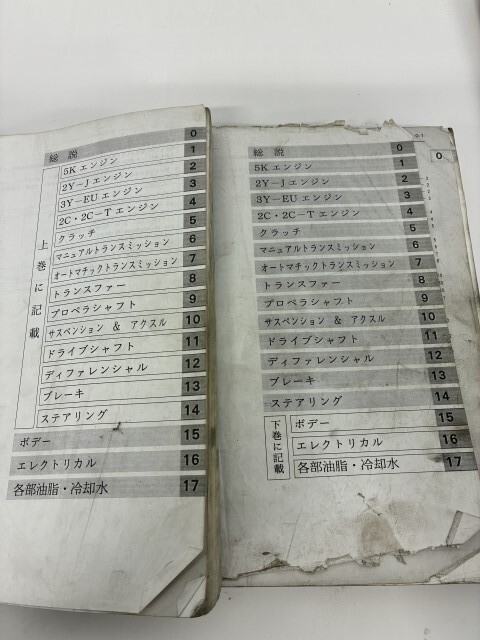 総説 0
5Kエンジン 1
2Y－Jエンジン 2
3Y－EUエンジン 3
2C・2C－Tエンジン 4
クラッチ 5
マニュアルトランスミッション 6
オートマチックトランスミッション 7
トランスファー 8
プロペラシャフト 9
サスペンション & アクスル 10
ドライブシャフト 11
ディファレンシャル 12
ブレーキ 13
ステアリング 14
上巻に記載
ボデー 15
エレクトリカル 16
各部油脂・冷却水 17
0-1
0
総説 0
5Kエンジン 1
2Y－Jエンジン 2
3Y－EUエンジン 3
2C・2C－Tエンジン 4
クラッチ 5
マニュアルトランスミッション 6
オートマチックトランスミッション 7
トランスファー 8
プロペラシャフト 9
サスペンション & アクスル 10
ドライブシャフト 11
ディファレンシャル 12
ブレーキ 13
ステアリング 14
下巻に記載
ボデー 15
エレクトリカル 16
各部油脂・冷却水 17